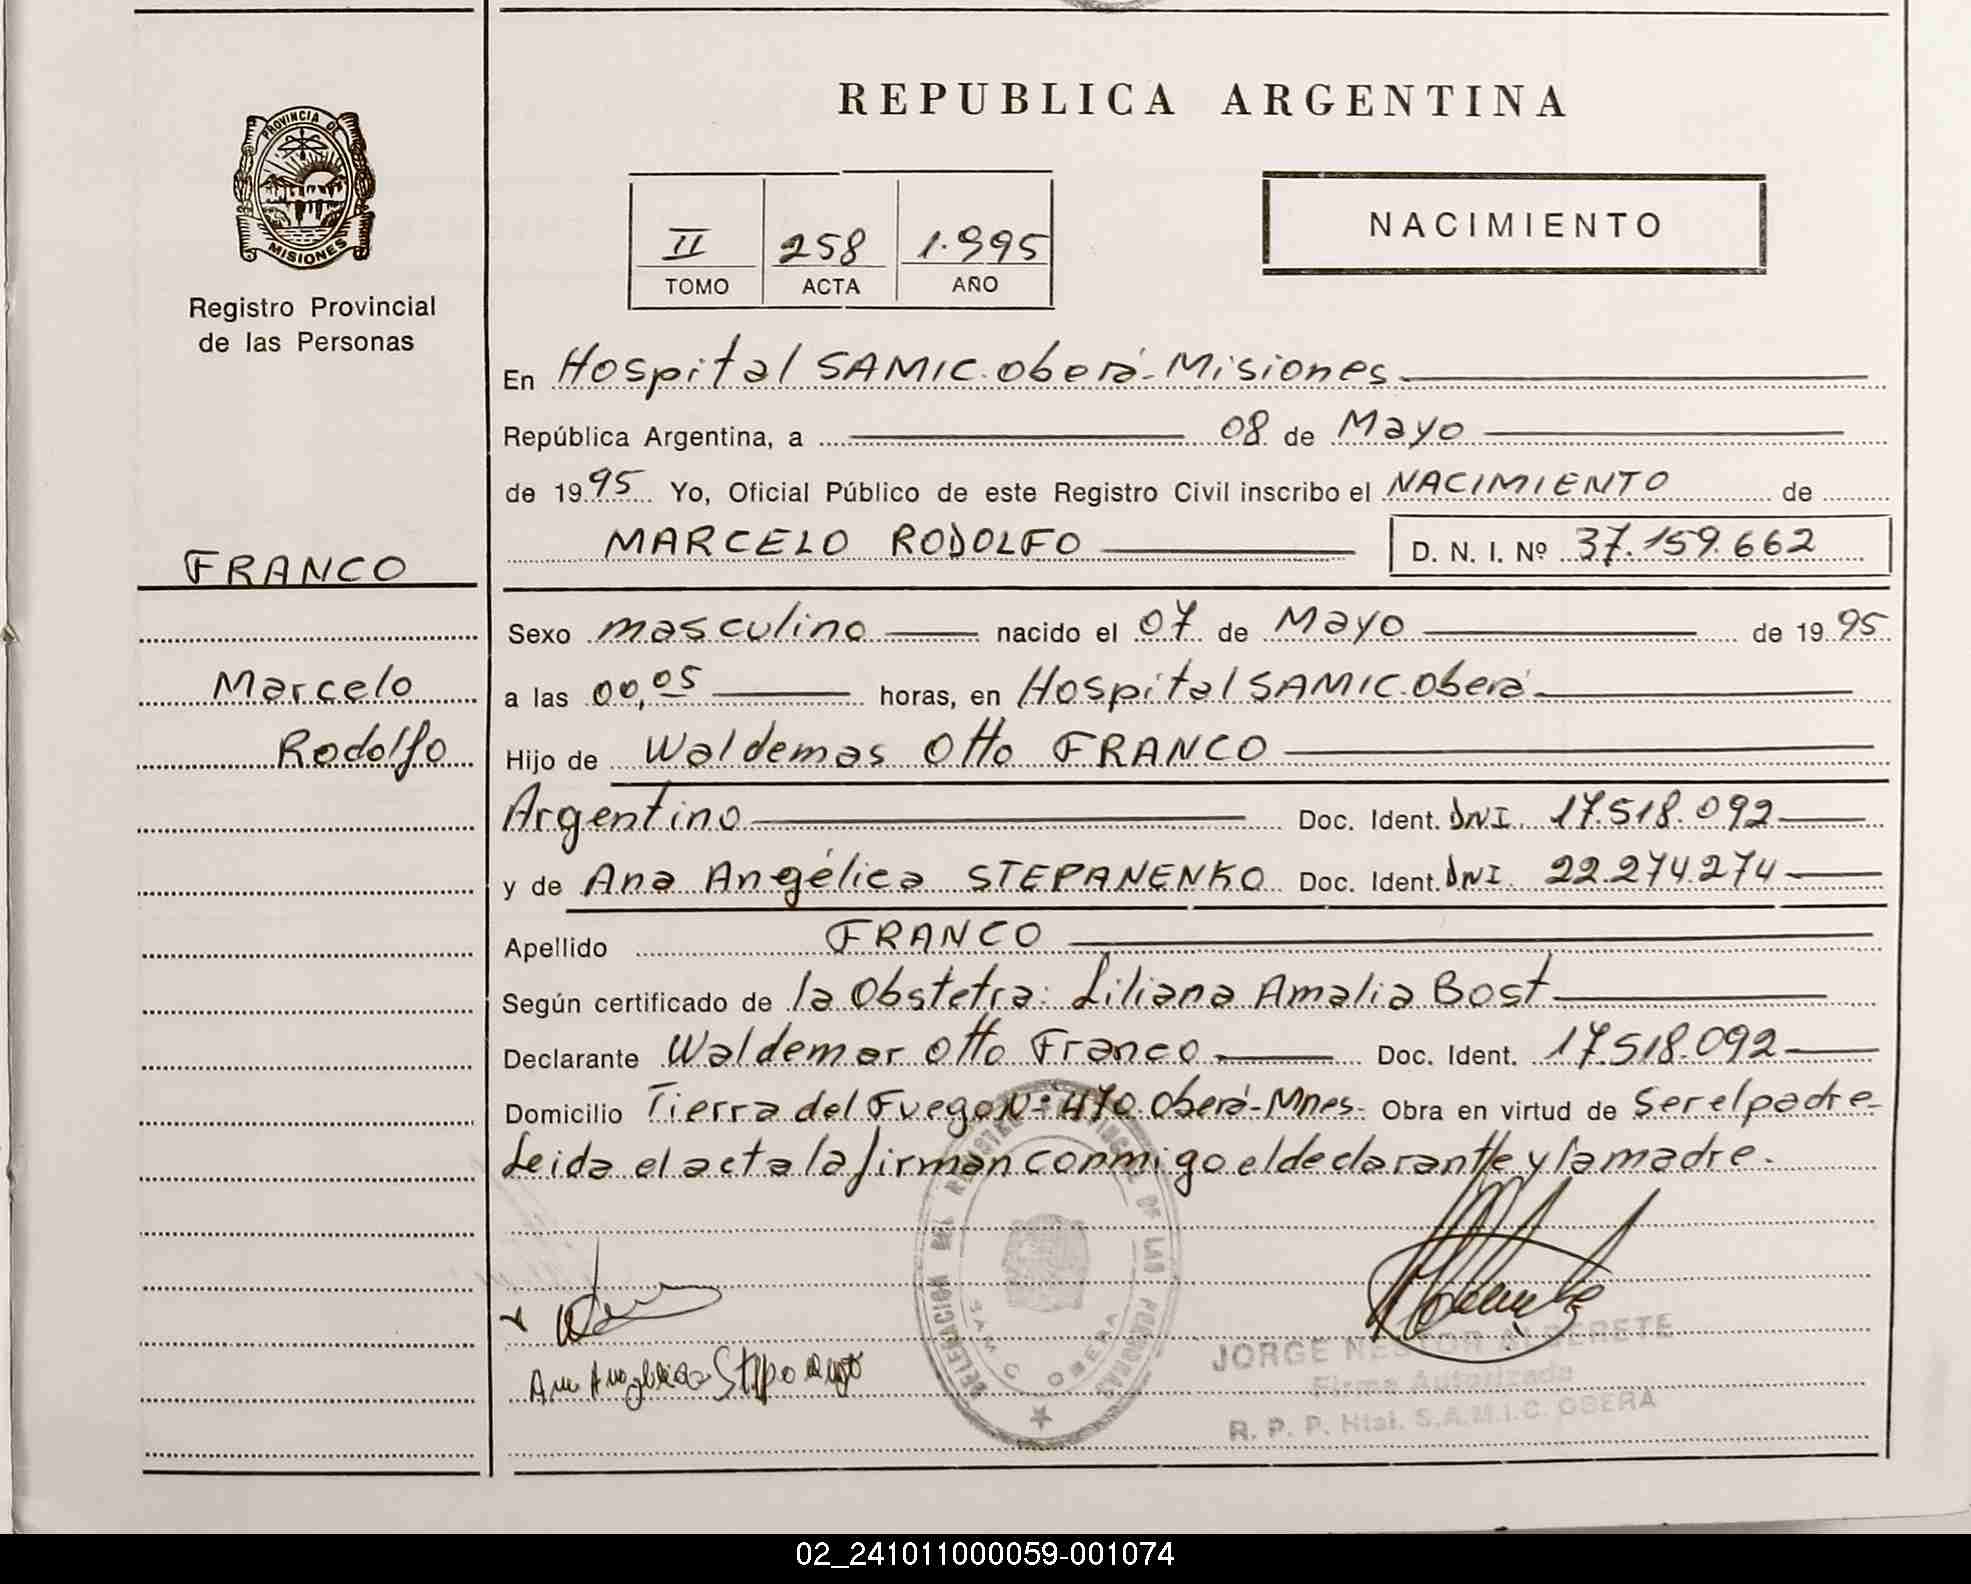 PROVINCIA DE
MISIONES
Registro Provincial
de las Personas
FRANCO
Marcelo
Rodolfo
REPUBLICA ARGENTINA
II 258 1.995
TOMO ACTA AÑO
NACIMIENTO
En Hospital SAMIC. Oberá - Misiones
República Argentina, a 08 de Mayo
de 1995 Yo, Oficial Público de este Registro Civil inscribo el NACIMIENTO de
MARCELO RODOLFO D. N. I. Nº 37.159.662
Sexo masculino nacido el 07 de Mayo de 1995
a las 00,05 horas, en Hospital SAMIC. Oberá
Hijo de Waldemas Otto FRANCO
Argentino Doc. Ident. DNI. 17.518.092
y de Ana Angélica STEPANENKO Doc. Ident. DNI. 22.274.274
Apellido FRANCO
Según certificado de la Obstetra: Liliana Amalia Bost
Declarante Waldemar Otto Franco Doc. Ident. 17.518.092
Domicilio Tierra del Fuego Nº 470. Oberá - Mnes. Obra en virtud de Ser el padre -
Leida el acta la firman conmigo el declarante y la madre.
DELEGACION DEL REGISTRO PROVINCIAL DE LAS PERSONAS
SAMIC OBERA
JORGE NESTOR ALDERETE
Firma Autorizada
R. P. P. Htal. S.A.M.I.C. OBERA
02_241011000059-001074